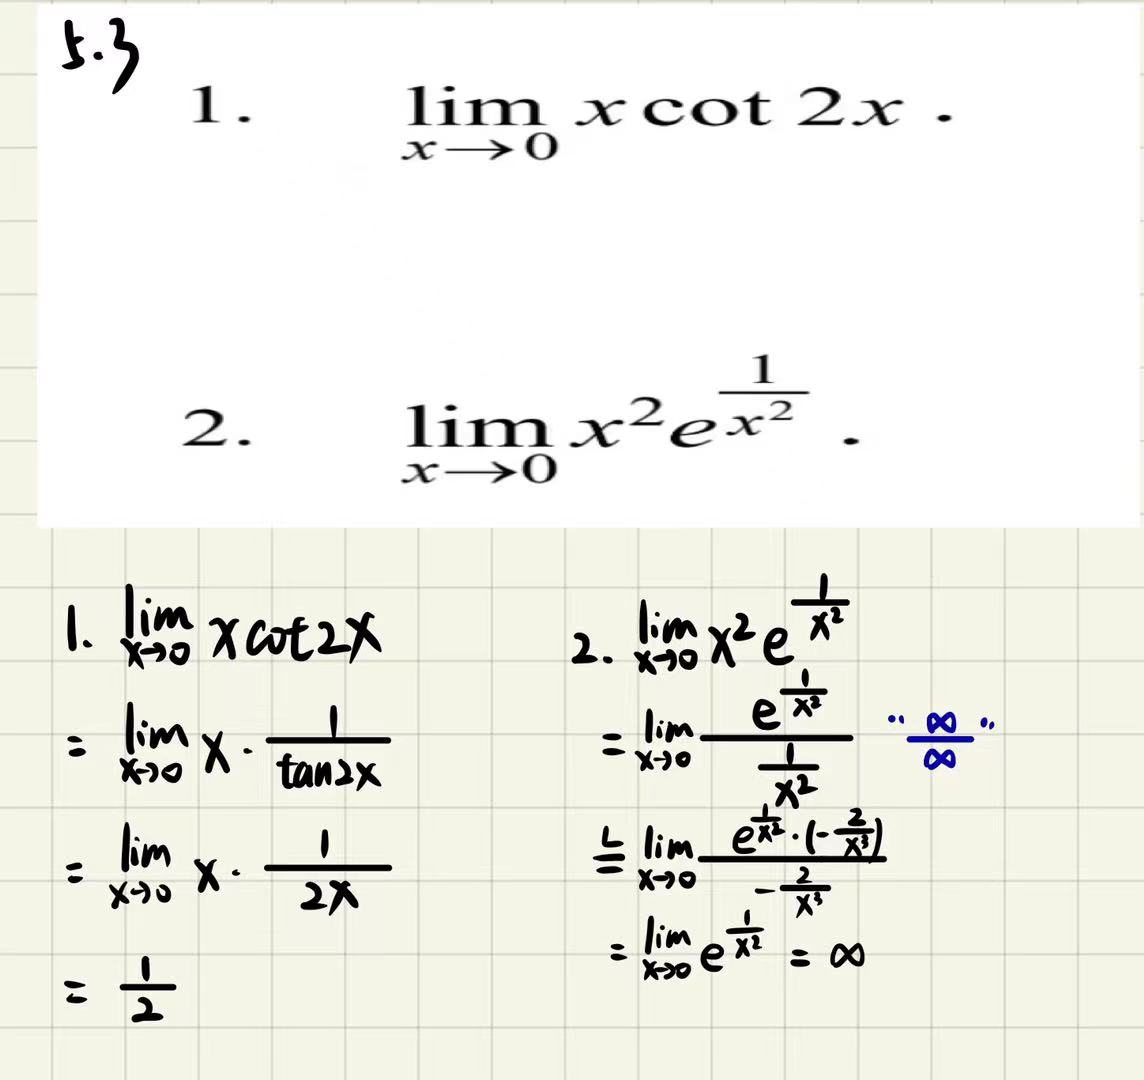 5.3
1. lim_{x→0} x cot 2x .
2. lim_{x→0} x^2 e^{1/x^2} .
1. lim_{x→0} x cot2x
= lim_{x→0} x · 1/tan2x
= lim_{x→0} x · 1/2x
= 1/2
2. lim_{x→0} x^2 e^{1/x^2}
= lim_{x→0} e^{1/x^2} / (1/x^2) "∞/∞"
L= lim_{x→0} e^{1/x^2} · (-2/x^3) / (-2/x^3)
= lim_{x→0} e^{1/x^2} = ∞